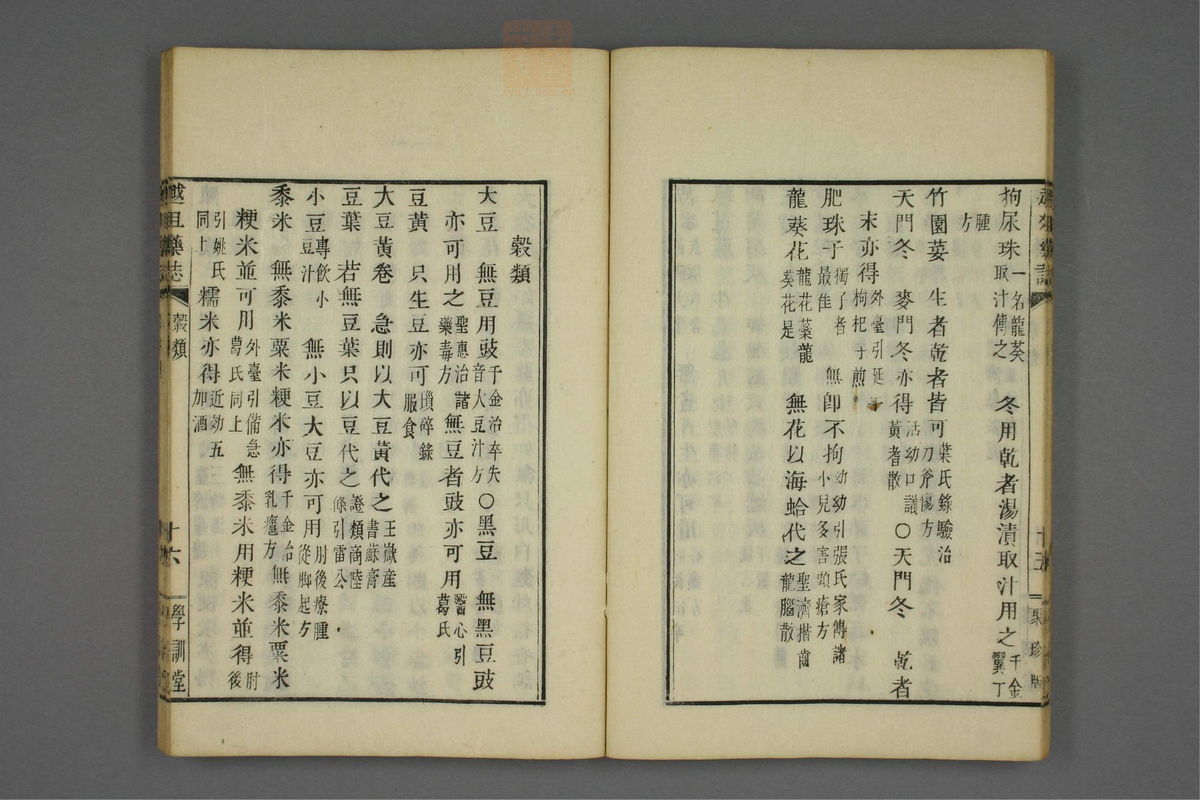 拘尿珠 一名龍葵取汁傅之 冬用乾者湯漬取汁用之 千金翼丁
腫方
竹園荽 生者乾者皆可 葉氏錄驗治刀斧傷方
天門冬 麥門冬亦得 活幼口議黃耆散 ○天門冬 乾者
末亦得 外臺引延枸杞子煎
肥珠子 獨子者最佳 無卽不拘 幼幼引張氏家傳諸小兒多害頭瘡方
龍葵花 龍花蕓龍葵花是 無花以海蛤代之 聖濟揩齒龍腦散
十五
聚珍版
穀類
大豆 無豆用豉 千金治卒失音大豆汁方 ○黑豆 無黑豆豉
亦可用之 聖惠治諸藥毒方 無豆者豉亦可用 醫心引葛氏
豆黃 只生豆亦可 瑣碎錄服食
大豆黃卷 急則以大豆黃代之 王嶽產書蘇膏
豆葉 若無豆葉只以豆代之 證類商陸條引雷公
小豆 專飲小豆汁 無小豆大豆亦可用 肘後療腫從脚起方
黍米 無黍米粟米粳米亦得 千金治乳癰方 無黍米粟米
粳米並可用 外臺引備急葛氏同上 無黍米用粳米並得 肘後
引姚氏同上 糯米亦得 近効五加酒
穀類
十六
學訓堂